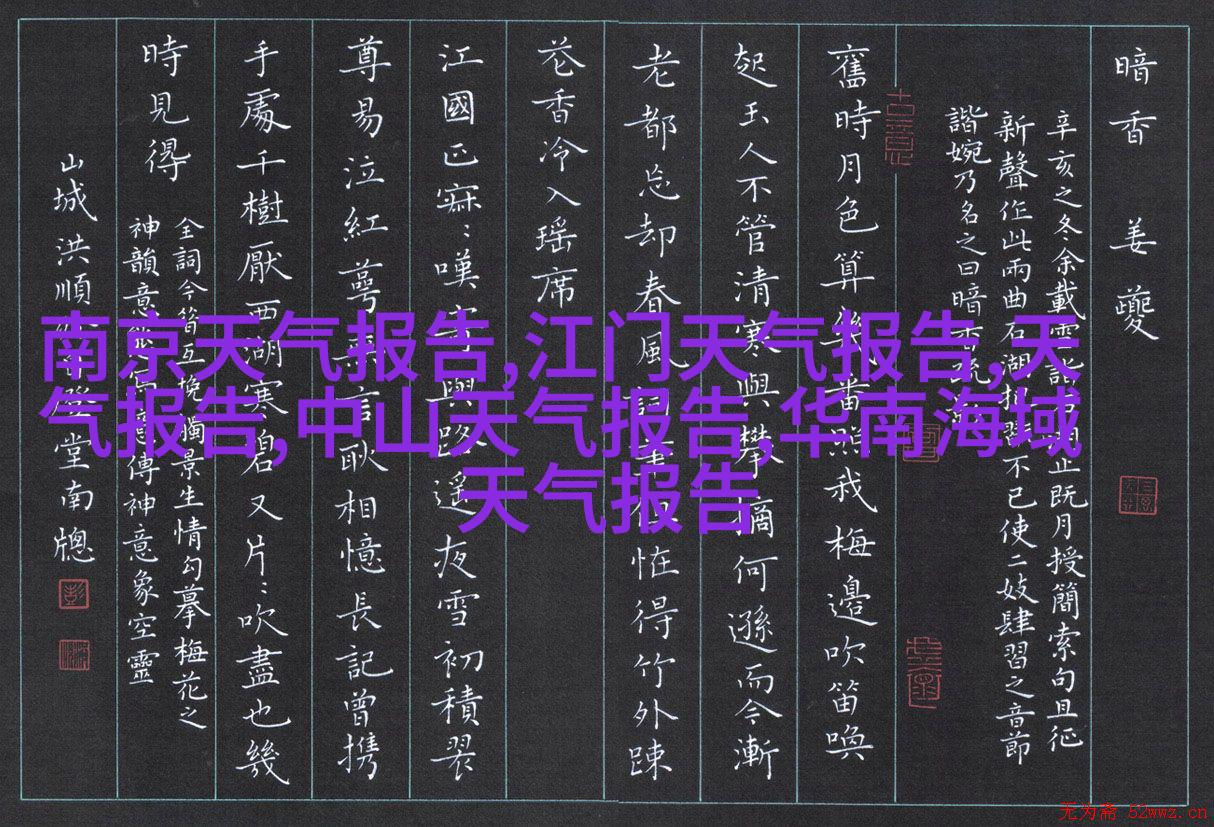 暗香 姜夔
辛亥之冬余載雪詣石湖止既月授簡索句且征
新聲作此兩曲石湖把玩不已使二妓肆習之音節
諧婉乃名之曰暗香疏影
古意
舊時月色算幾番照我梅邊吹笛喚
起玉人不管清寒與攀摘何遜而今漸
老都忘却春風詞筆但怪得竹外疎
花香冷入瑶席
江國正寂：嘆寄與路遥夜雪初積翠
尊易泣紅萼無言耿相憶長記曾携
手處千樹壓西湖寒碧又片：吹盡也幾
時見得
全詞今昔互挽觸景生情勾摹梅花之
神韻意傳神意象空靈
山城洪順堂南牕
南京天气报告,江门天气报告,天
气报告,中山天气报告,华南海域
天气报告
无为斋 52wwz.cn